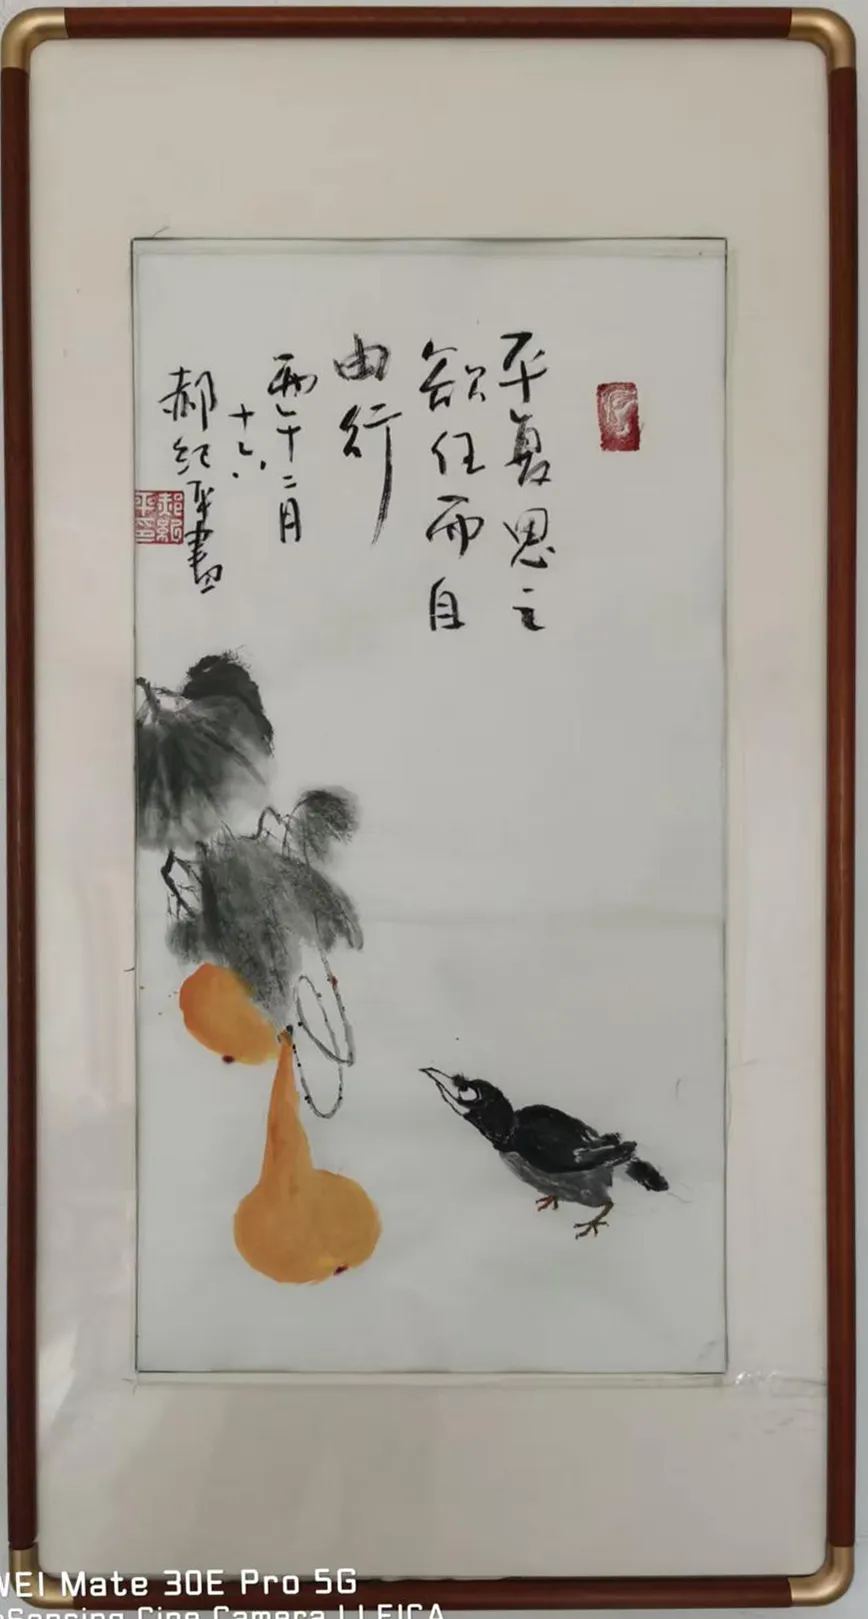 平复思之
欲任而自
由行
丙午二月
十六
郝纪平畫
郝紀平印
WEI Mate 30E Pro 5G
Sensing Cine Camera | LEICA